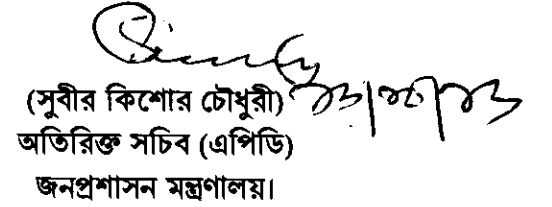 (সুবীর কিশোর চৌধুরী)
অতিরিক্ত সচিব (এপিডি)
জনপ্রশাসন মন্ত্রণালয়।